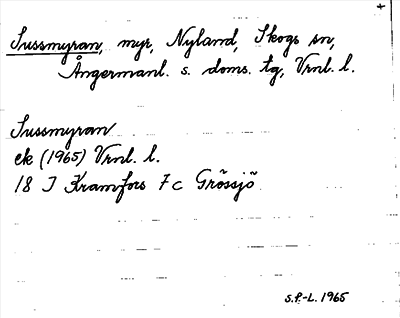 Sussmyran, myr, Nyland, Skogs sn,
Ångermanl. s. doms. tg, Vrnl. l.
Sussmyran
ek (1965) Vrnl. l.
18 J Kramfors 7 c Grössjö
S.F.-L. 1965